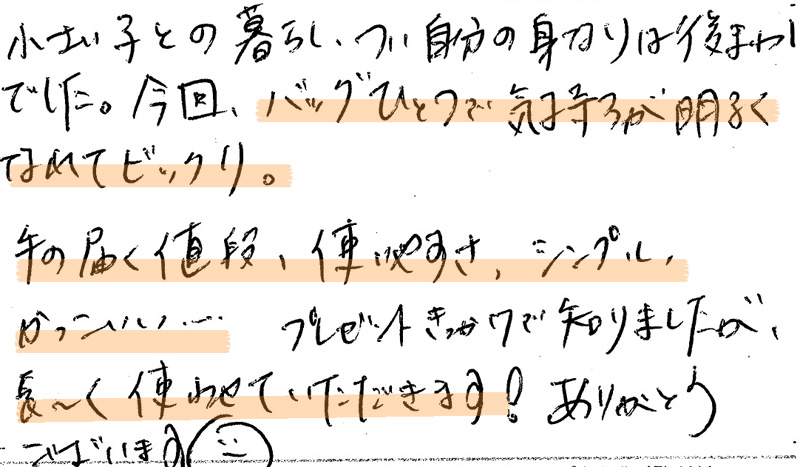 小さい子との暮らし、つい自分の身なりは後まわし
でした。今回、バッグひとつで気持ちが明るく
なれてビックリ。
手の届く値段、使いやすさ、シンプル、
かっこいい… プレゼントきっかけで知りましたが、
長〜く使わせていただきます!ありがとう
ございます